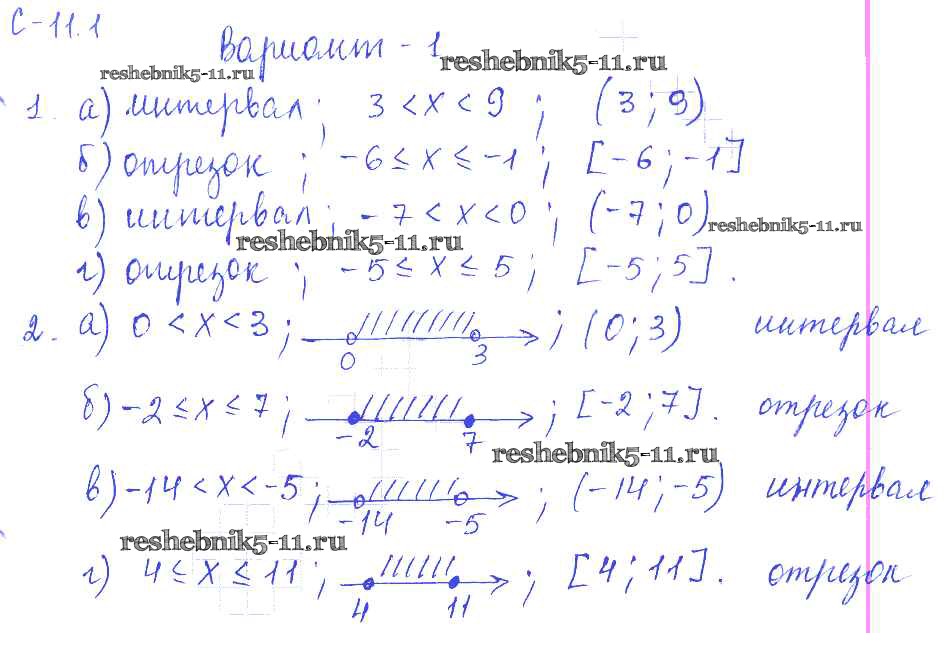 С-11.1
Вариант - 1
reshebnik5-11.ru reshebnik5-11.ru
1. а) интервал; 3 < x < 9; (3; 9)
б) отрезок; -6 ≤ x ≤ -1; [-6; -1]
в) интервал; -7 < x < 0; (-7; 0) reshebnik5-11.ru
reshebnik5-11.ru
г) отрезок; -5 ≤ x ≤ 5; [-5; 5].
2. а) 0 < x < 3; ; (0; 3) интервал
0 3
б) -2 ≤ x ≤ 7; ; [-2; 7]. отрезок
-2 7
reshebnik5-11.ru
в) -14 < x < -5; ; (-14; -5) интервал
-14 -5
reshebnik5-11.ru
г) 4 ≤ x ≤ 11; ; [4; 11]. отрезок
4 11